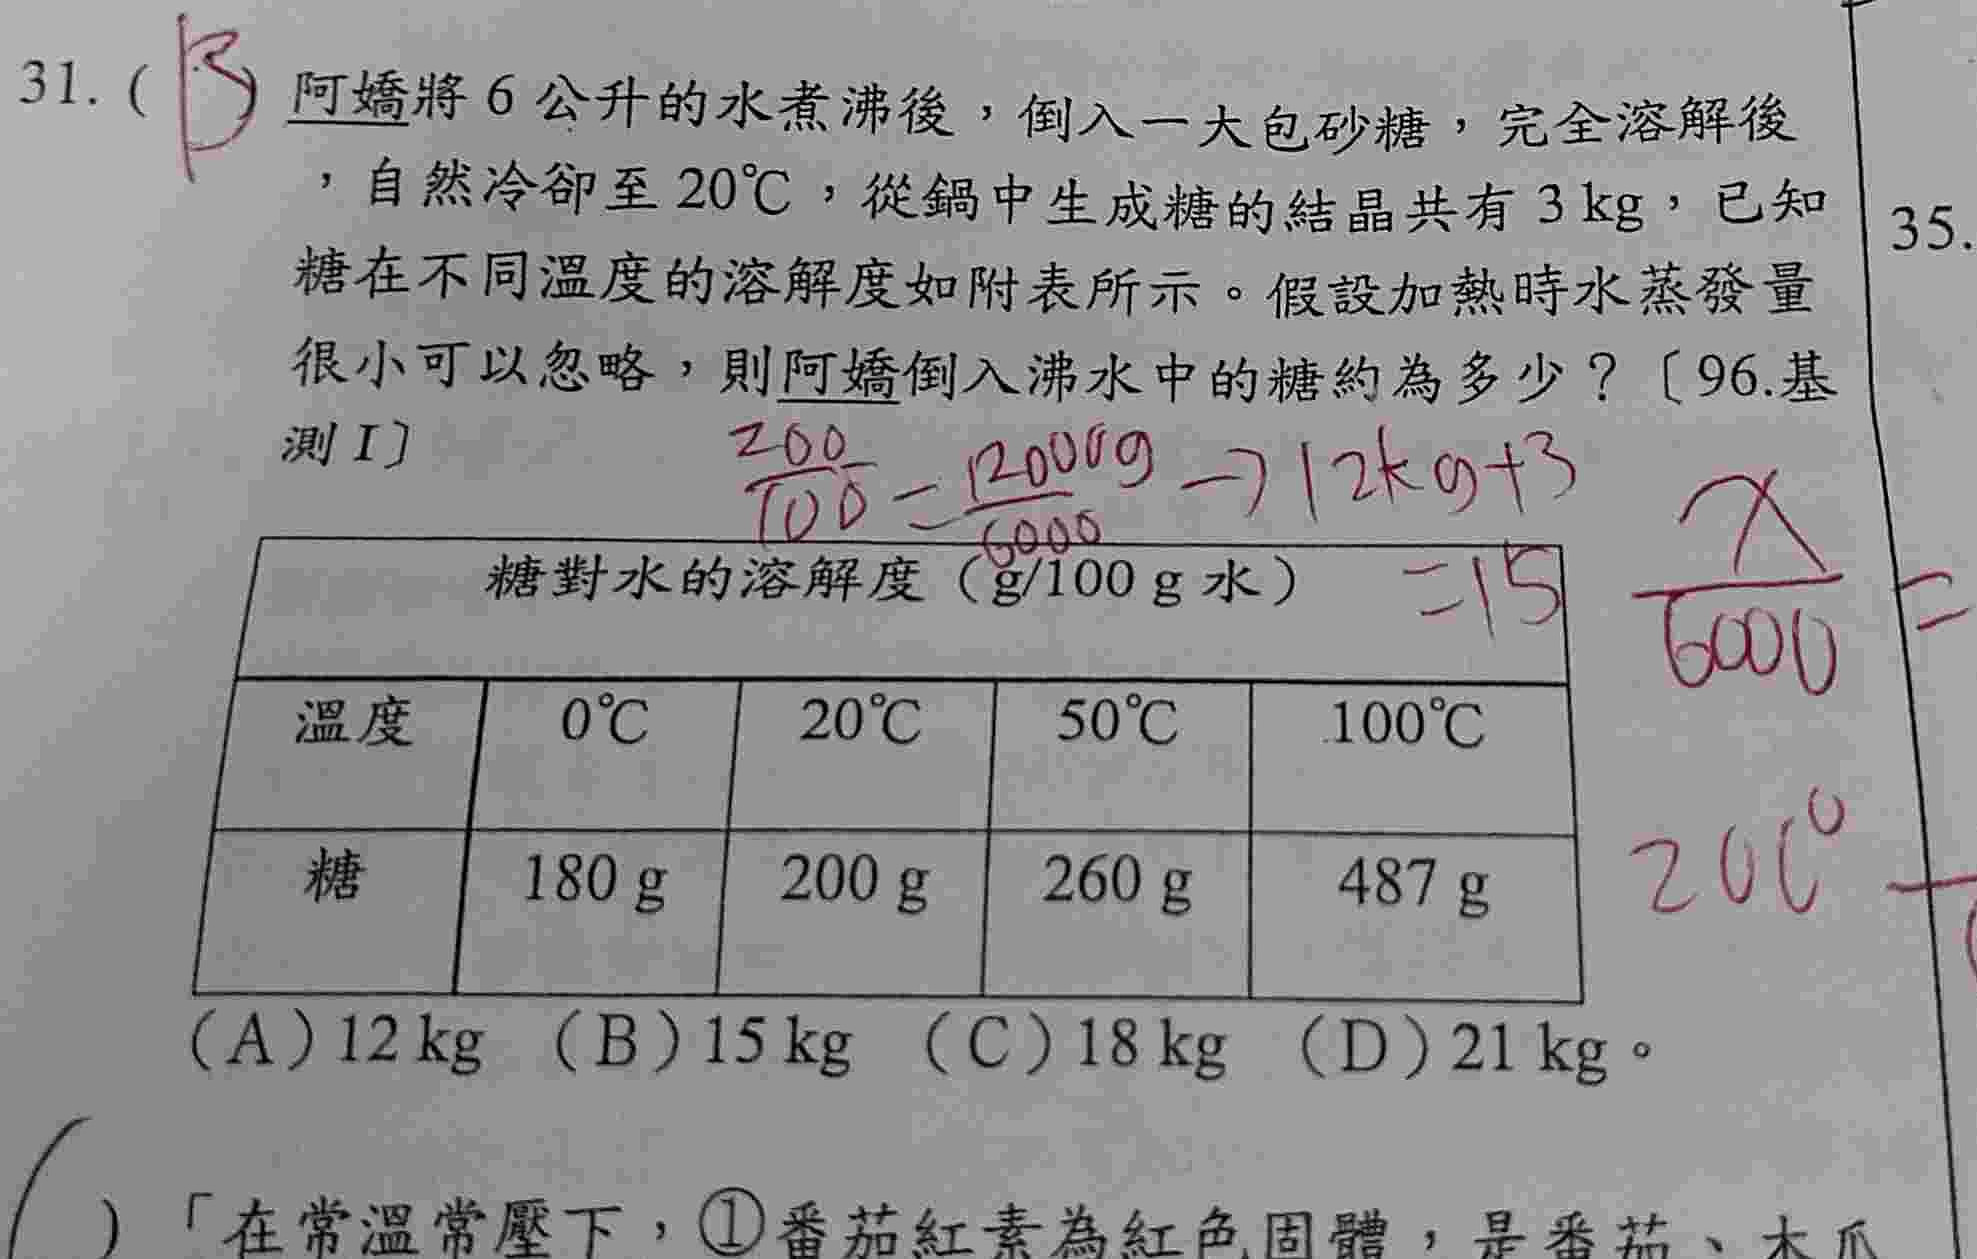 31. (B) 阿嬌將 6 公升的水煮沸後，倒入一大包砂糖，完全溶解後
，自然冷卻至 20℃，從鍋中生成糖的結晶共有 3 kg，已知
糖在不同溫度的溶解度如附表所示。假設加熱時水蒸發量
很小可以忽略，則阿嬌倒入沸水中的糖約為多少？〔96.基
測 I〕
200/100 = 12000g/6000 → 12kg+3
=15
x/6000 =
糖對水的溶解度（g/100 g 水）
溫度 0℃ 20℃ 50℃ 100℃
糖 180 g 200 g 260 g 487 g
2000
（A）12 kg （B）15 kg （C）18 kg （D）21 kg。
) 「在常溫常壓下，①番茄紅素為紅色固體，是番茄、木瓜
35.